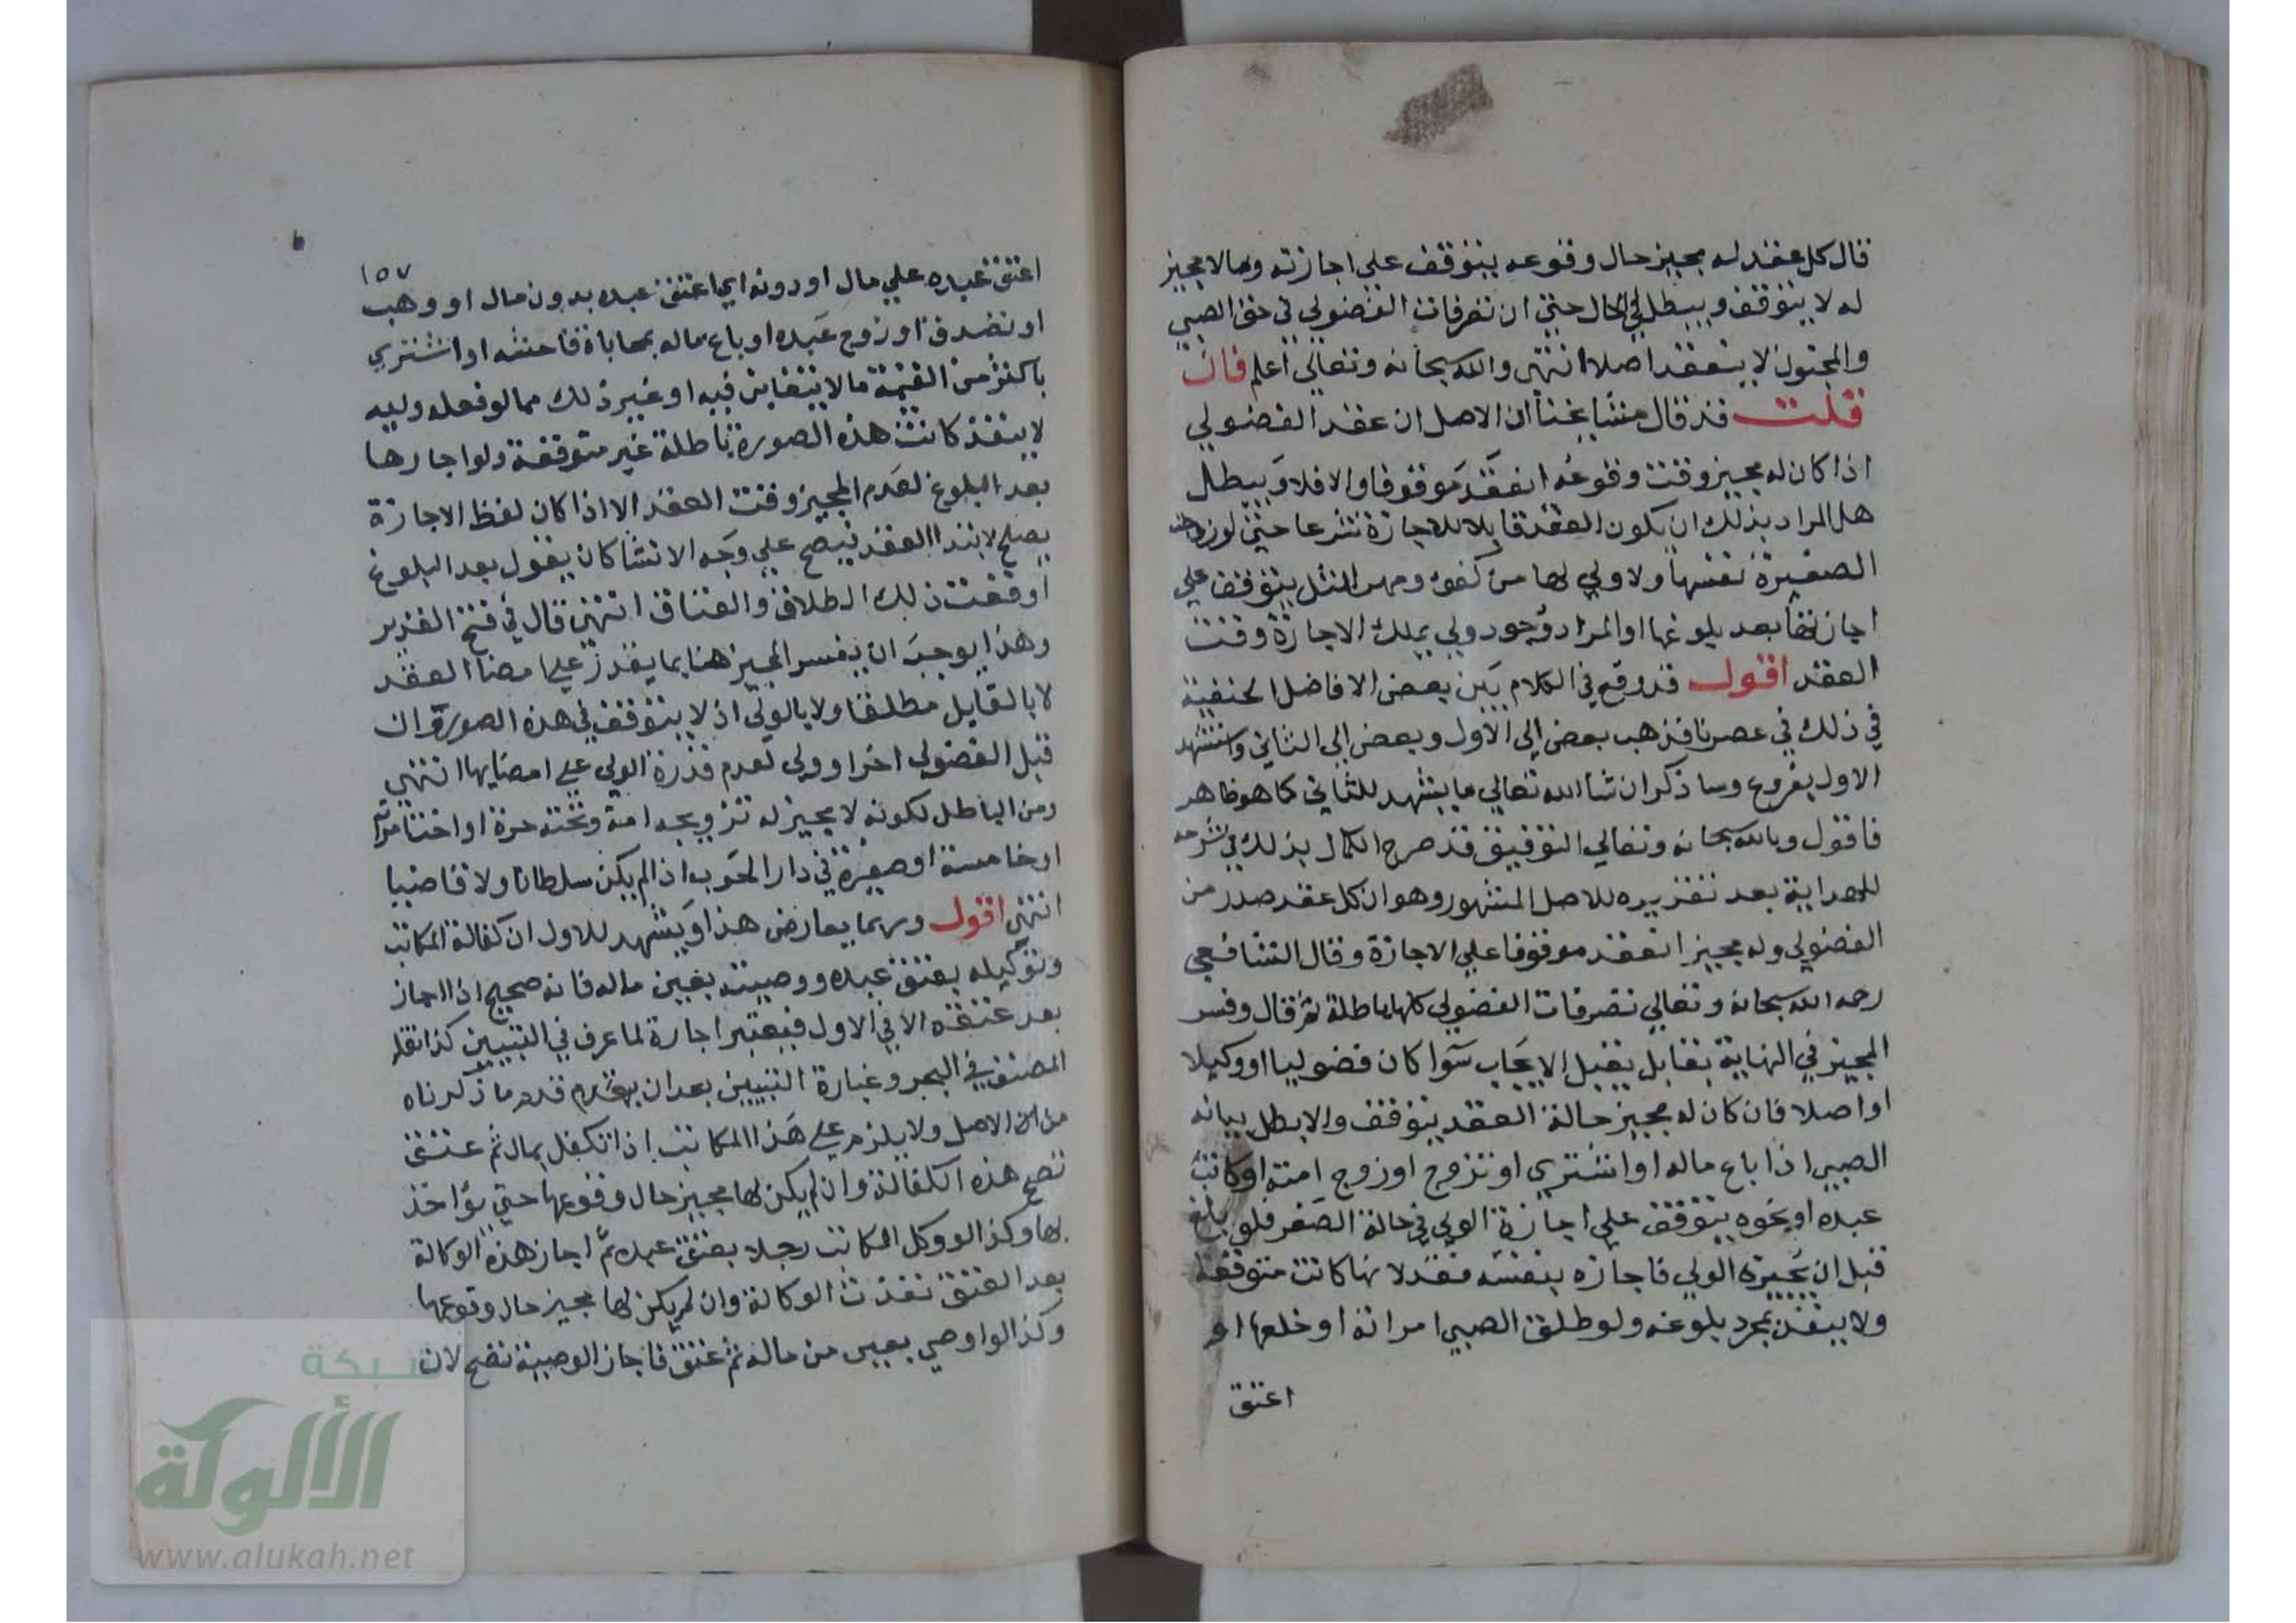 قال كل عقد له مجيز حال وقوعه يتوقف علي اجازته وما لا مجيز
له لا يتوقف ويبطل في الحال حتي ان تصرفات الفضولي في حق الصبي
والمجنون لا ينعقد اصلا انتهى والله سبحانه وتعالي اعلم فان
قلت قد قال مشايخنا ان الاصل ان عقد الفضولي
اذا كان له مجيز وقت وقوعه انعقد موقوفا والا فلا ويبطل
هل المراد بذلك ان يكون العقد قابلا للاجازة شرعا حتي لو زوجت
الصغيرة نفسها ولا ولي لها من كفوء ومهر المثل يتوقف علي
اجازتها بعد بلوغها او المراد وجود ولي يملك الاجازة وقت
العقد اقول قد وقع في الكلام بين بعض الافاضل الحنفية
في ذلك في عصرنا فذهب بعض الى الاول وبعض الى الثاني واستشهد
الاول بفروع وساذكر ان شا الله تعالي ما يشهد للثاني كما هو ظاهر
فاقول وبالله سبحانه وتعالي التوفيق قد صرح الكمال بذلك في شرحه
للهداية بعد تقريره للاصل المشهور وهو ان كل عقد صدر من
الفضولي وله مجيز انعقد موقوفا علي الاجازة وقال الشافعي
رحمه الله سبحانه وتعالي تصرفات الفضولي كلها باطلة ثم قال وفسر
المجيز في النهاية بقابل يقبل الايجاب سوا كان فضوليا او وكيلا
او اصلا فان كان له مجيز حالة العقد يتوقف والا بطل بيانه
الصبي اذا باع ماله او اشتري او تزوج او زوج امته او كاتب
عبده او نحوه يتوقف علي اجازة الولي في حالة الصغر فلو بلغ
قبل ان يجيزه الولي فاجازه بنفسه فقد لانها كانت متوقفة
ولا ينفذ بمجرد بلوغه ولو طلق الصبي امراته او خلعها او
اعتق
١٥٧
اعتق عبده علي مال او دونه اي اعتق عبده بدون مال او وهب
او تصدق او زوج عبده او باع ماله بمحاباة فاحشة او اشتري
باكثر من القيمة ما لا يتغابن فيه او غير ذلك مما لو فعله وليه
لا ينفذ كانت هذه الصورة باطلة غير متوقفة ولو اجازها
بعد البلوغ لعدم المجيز وقت العقد الا اذا كان لفظ الاجازة
يصلح لابتدا العقد فيصح علي وجه الانشا كان يقول بعد البلوغ
اوقعت ذلك الطلاق والعتاق انتهى قال في فتح القدير
وهذا يوجب ان يفسر المجيز هنا بما يقدر علي امضا العقد
لا بالقابل مطلقا ولا بالولي اذ لا يتوقف في هذه الصورة وان
قبل الفضولي اخر او ولي لعدم قدرة الولي علي امضايها انتهى
ومن الباطل لكونه لا مجيز له تزويجه امة وتحته حرة او اخت امراته
او خامسة او صغيرة في دار الحرب اذا لم يكن سلطانا ولا قاضيا
انتهى اقول وربما يعارض هذا ويشهد للاول ان كفالة المكاتب
وتوكيله بعتق عبده ووصيته بعين ماله فانه صحيح اذا اجاز
بعد عتقه الا في الاول فبغير اجازة لما عرف في التبيين كذا نقله
المصنف في البحر وعبارة التبيين بعد ان قدم ما ذكرناه
من ان الاصل ولا يلزم علي هذا المكاتب اذا تكفل بمال ثم عتق
تصح هذه الكفالة وان لم يكن لها مجيز حال وقوعها حتي يؤاخذ
بها وكذا لو وكل المكاتب رجلا بعتق عبده ثم اجاز هذه الوكالة
بعد العتق نفذت الوكالة وان لم يكن لها مجيز حال وقوعها
وكذا لو اوصي بعين من ماله ثم عتق فاجاز الوصية تصح لان
شبكة
الألوكة
www.alukah.net